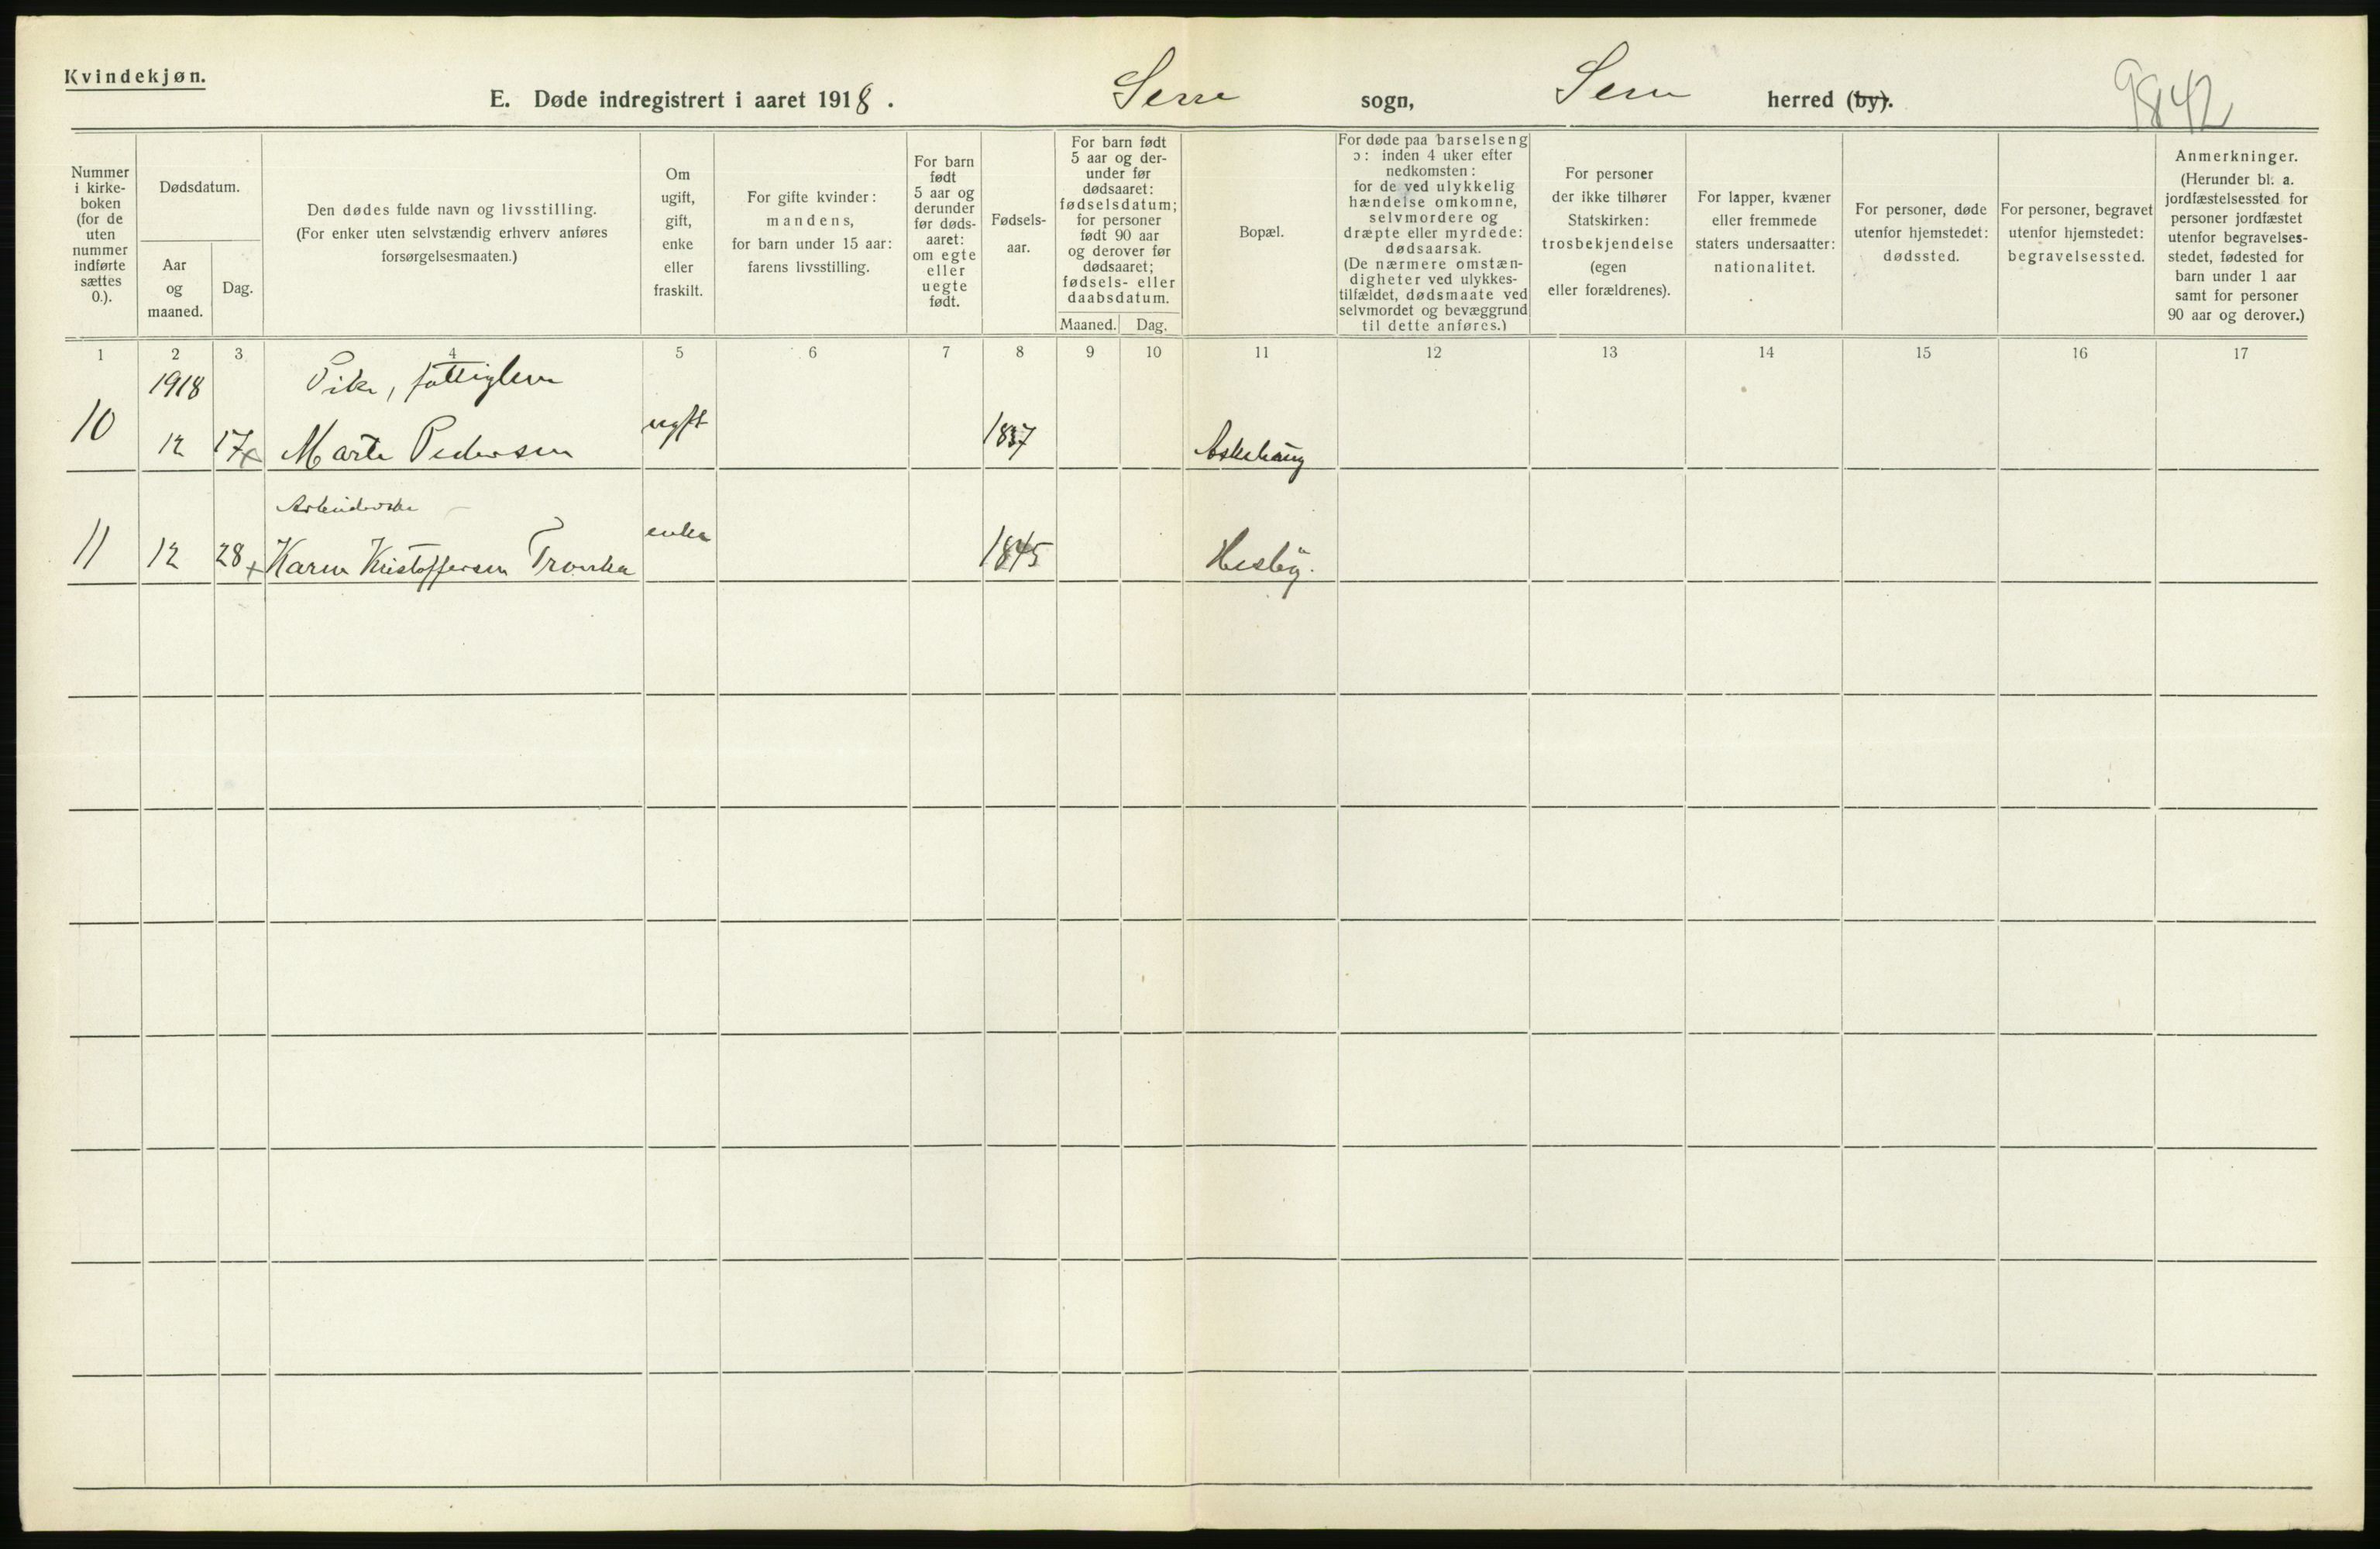 Kvindekjøn.
E. Døde indregistrert i aaret 1918. Sem sogn, Sem herred (by).
9842
Nummer i kirke-boken (for de uten nummer indførte sættes 0.).
Dødsdatum.
Aar og maaned.
Dag.
Den dødes fulde navn og livsstilling.
(For enker uten selvstændig erhverv anføres forsørgelsesmaaten.)
Om ugift, gift, enke eller fraskilt.
For gifte kvinder: mandens, for barn under 15 aar: farens livsstilling.
For barn født 5 aar og derunder før døds-aaret: om egte eller uegte født.
Fødsels-aar.
For barn født 5 aar og der-under før dødsaaret: fødselsdatum; for personer født 90 aar og derover før dødsaaret; fødsels- eller daabsdatum.
Maaned.
Dag.
Bopæl.
For døde paa barselseng ɔ: inden 4 uker efter nedkomsten: for de ved ulykkelig hændelse omkomne, selvmordere og dræpte eller myrdede: dødsaarsak.
(De nærmere omstæn-digheter ved ulykkes-tilfældet, dødsmaate ved selvmordet og bevæggrund til dette anføres.)
For personer der ikke tilhører Statskirken: trosbekjendelse (egen eller forældrenes).
For lapper, kvæner eller fremmede staters undersaatter: nationalitet.
For personer, døde utenfor hjemstedet: dødssted.
For personer, begravet utenfor hjemstedet: begravelsessted.
Anmerkninger.
(Herunder bl. a. jordfæstelsessted for personer jordfæstet utenfor begravelses-stedet, fødested for barn under 1 aar samt for personer 90 aar og derover.)
1 2 3 4 5 6 7 8 9 10 11 12 13 14 15 16 17
1918 Pike, fattiglem
10 12 17 Marte Pedersen ugift 1837 Askehaug
11 12 28 Karen Kristoffersen enke 1845 Hesby.